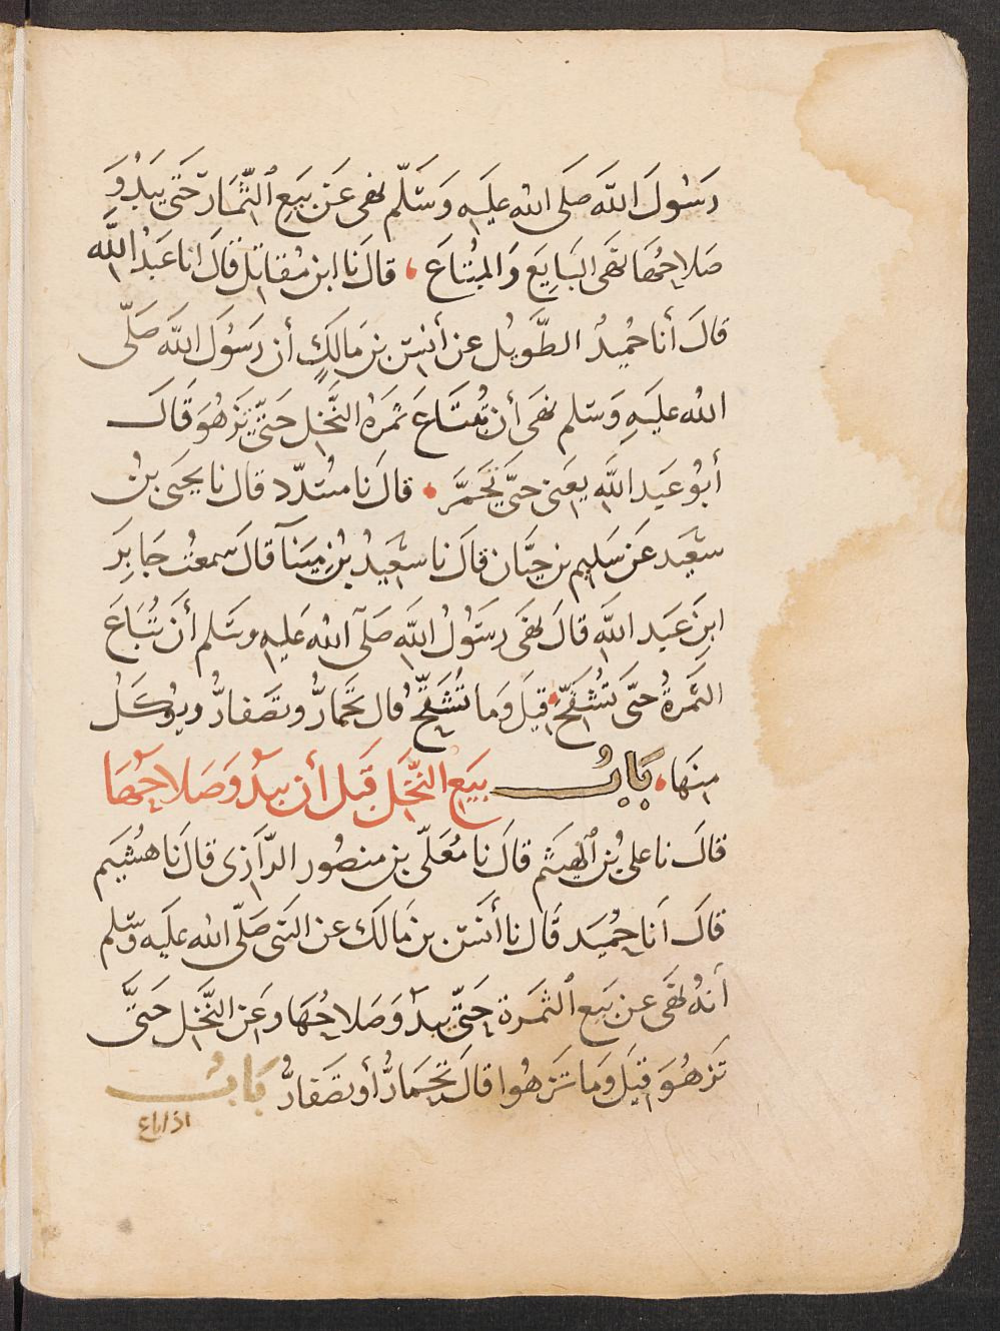 رَسُولَ اللَّهَ صَلَى الله عليَه وَسَلّم نهى عَن بَيَع الثِّمَار حَتى يَبدُوَ
صَلاحُهَا نهَى البَايعَ وَالمبُتاعَ ، قالَ نا ابن مقاتل قالَ انا عَبدُ اللَّه
قالَ أنا حُميدُ الطَّويُل عن أنسِ بن مَالكٍ أن رَسُولَ اللَّه صَلّى
الله عليَهِ وَسَلم نهَى أن تُبتَاعَ ثمرَةُ النَّخل حَتّى تزهُوَ قَالَ
أبوُ عَبد اللَّه يعَنى حتىَّ تحَمَرَّ ، قالَ نا مسُدّد قال نا يحَيى بنُ
سعَيد عَن سَليم بن حيّان قالَ نا سَعيَدُ بنُ ميَنآ قالَ سمعتُ جَابرَ
ابنَ عبَد اللَّه قالَ نهَى رسَوُلُ اللَّه صَلّى الله عَليه وسَلم أنَ تُبَاعَ
الثَّمرَةُ حتىَّ تُشَقّحَ ، قيلَ وَمَا تُشَقّحُ قال تحَمارُّ وتصَفارُّ ويوُكَلُ
منهَا ، بَابُ بَيَع النَّخَل قبَل أن يبدُوَ صَلاحُهَا
قالَ نا على بُن الهيثَم قالَ نا مُعَلّى بن منصُور الرَّازى قالَ نَا هشُيَم
قالَ أنا حمُيَد قَال نا أنَسَ بن مَالك عن النبَى صَلّى الله عليَه وسّلم
أنهُ نهَى عن بَيع الثمَرة حَتىّ يبدُوَ صَلاحُهَا وَعَن النَّخل حَتىَّ
تزَهُوَ قيلَ وَمَا تزَهُوا قالَ تحمَارُّ أو تصَفَارُّ بَابُ
اذا باع